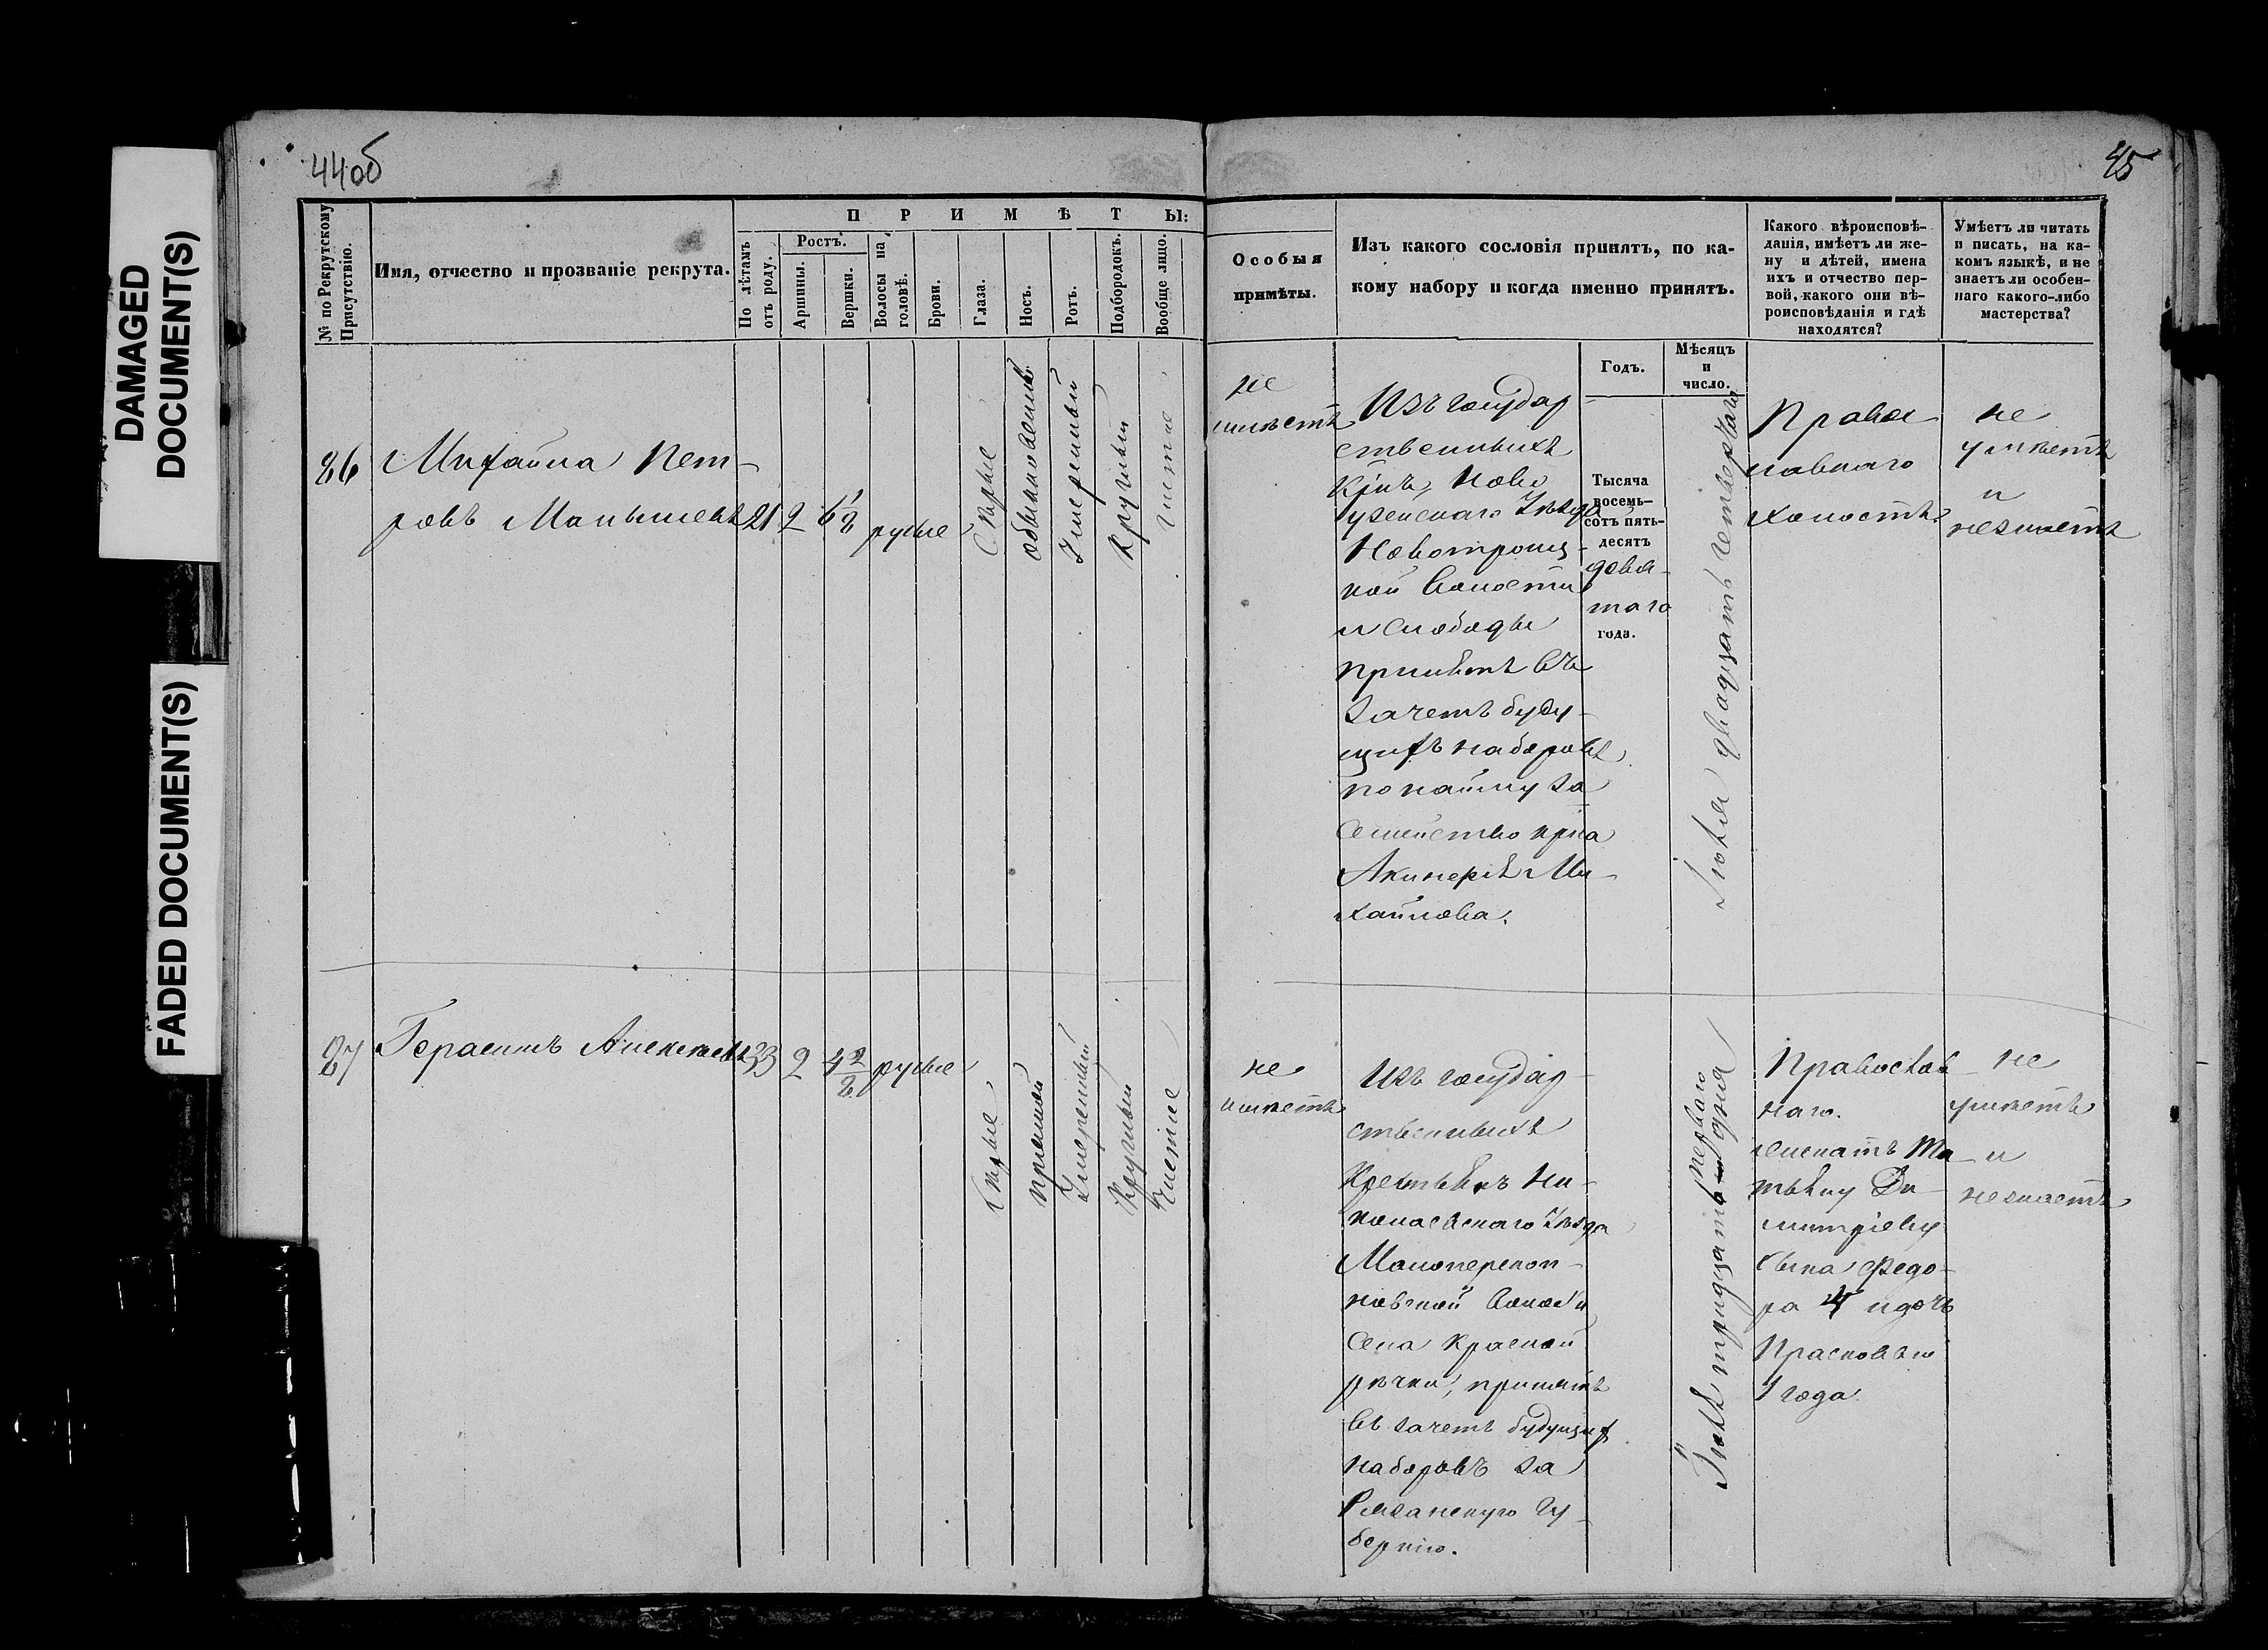 DAMAGED
DOCUMENT(S)
FADED DOCUMENT(S)
44об
45
№ по Рекрутскому
Присутствію.
Имя, отчество и прозваніе рекрута.
ПРИМѢТЫ:
По лѣтамъ
отъ роду.
Ростъ.
Аршины.
Вершки.
Волосы на
головѣ.
Брови.
Глаза.
Носъ.
Ротъ.
Подбородокъ.
Вообще лицо.
Особыя
примѣты.
Изъ какого сословія принятъ, по ка-
кому набору и когда именно принятъ.
Годъ.
Мѣсяцъ
и
число.
Какого вѣроисповѣ-
данія, имѣетъ ли же-
ну и дѣтей, имена
ихъ и отчество пер-
вой, какого они вѣ-
роисповѣданія и гдѣ
находятся?
Умѣетъ ли читать
и писать, на ка-
комъ языкѣ, и не
знаетъ ли особен-
наго какого-либо
мастерства?
86
Михайла Пет-
ровъ
21
2
6 1/8
русые
Сѣрые
обыкновенный
Умеренный
Круглый
чистое
не
имѣетъ
Изъ государ
ственныхъ
Кр҃нъ, Ново
узенскаго Уѣзда
Новотроиц-
кой Волости
и Слободы
принятъ въ
зачетъ буду-
щихъ наборовъ
по найму за
Семейство кр҃на
Ми-
хайлова.
Тысяча
восемь-
сотъ пять-
десятъ
девя-
таго
года.
Іюля двадцать четвертаго
Право
славнаго
холостъ.
не
умѣетъ
и
незнаетъ
87
Герасимъ Алексѣевъ
33
2
4 2/8
русые
Сѣрые
прямой
Умеренный
Круглый
Чистое
не
имѣетъ
Изъ государ-
ственныхъ
Крестьянъ Ни-
колаевскаго Уѣзда
Малоперекоп-
новской Волости
Села Красной
рѣчки, принятъ
въ зачетъ будущих
наборовъ за
Рязанскую Гу-
бернію.
тридцать перваго дня
Православ-
наго.
женатъ
Ди-
митріеву
сына Федо-
ра 4 и дочь
Прасковью
1 года.
не
умѣетъ
и
незнаетъ